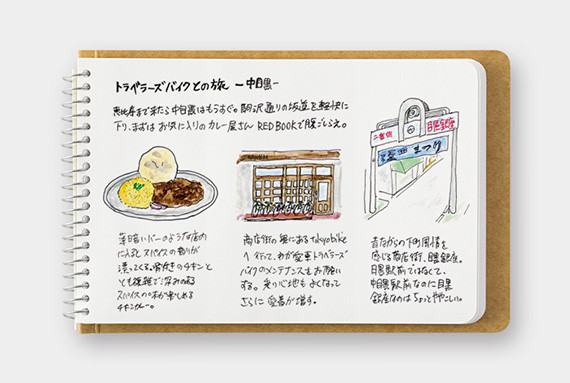 トラベラーズバイクとの旅 ー中目黒ー
恵比寿まで来たら中目黒はもうすぐ。駒沢通りの坂道を軽快に
下り、まずはお気に入りのカレー屋さん RED BOOKで腹ごしらえ。
二番街
目黒銀座
まつり
薄暗いバーのようなお店の
に入ると スパイスの香りが
漂ってくる。骨付きのチキンと
とても複雑で深みのある
スパイスの味が楽しめる
チキンカレー。
商店街の奥にあるtokyobike
へ行って、わが愛車トラベラーズ
バイクのメンテナンスもお願い
する。走り心地もよくなって
さらに愛着が増す。
昔ながらの下町風情を
感じる商店街、目黒銀座。
目黒駅前ではなくて、
中目黒駅前なのに目黒
銀座なのはちょっとややこしい。